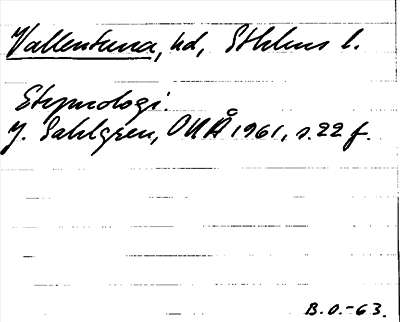 Vallentuna, hd, Sthlms l.
Etymologi.
J. Sahlgren, ONÅ 1961, s. 22 f.
B.O.-63.